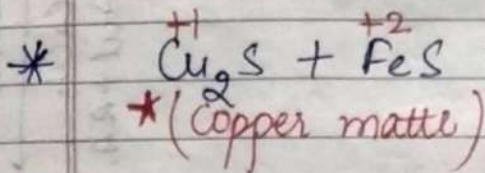 +1 +2
* Cu₂S + FeS
*(Copper matte)